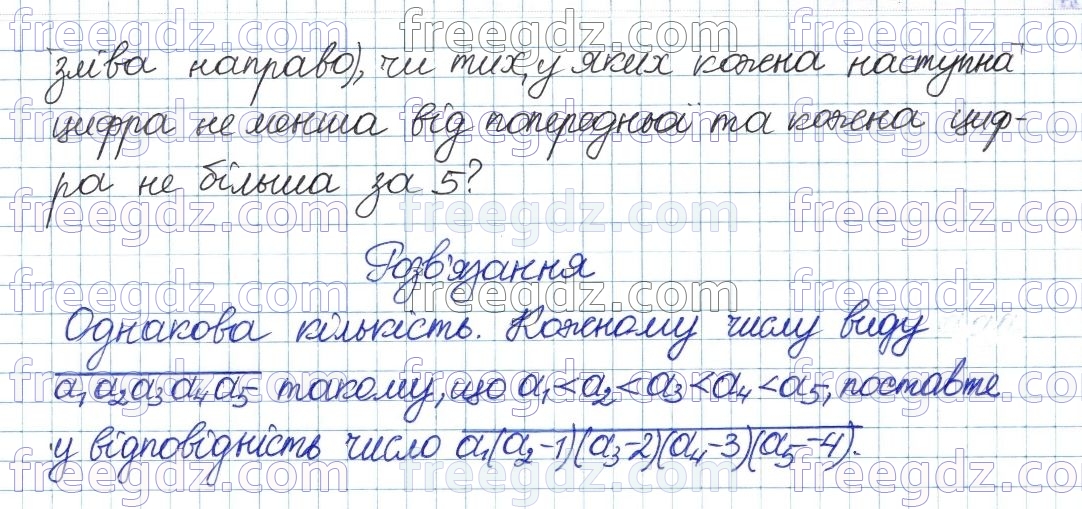 зліва направо), чи тих, у яких кожна наступна
цифра не менша від попередньої та кожна циф-
ра не більша за 5?
Розв'язання
Однакова кількість. Кожному числу виду
a₁a₂a₃a₄a₅ такому, що a₁<a₂<a₃<a₄<a₅, поставте
у відповідність число a₁(a₂-1)(a₃-2)(a₄-3)(a₅-4).
freegdz.com